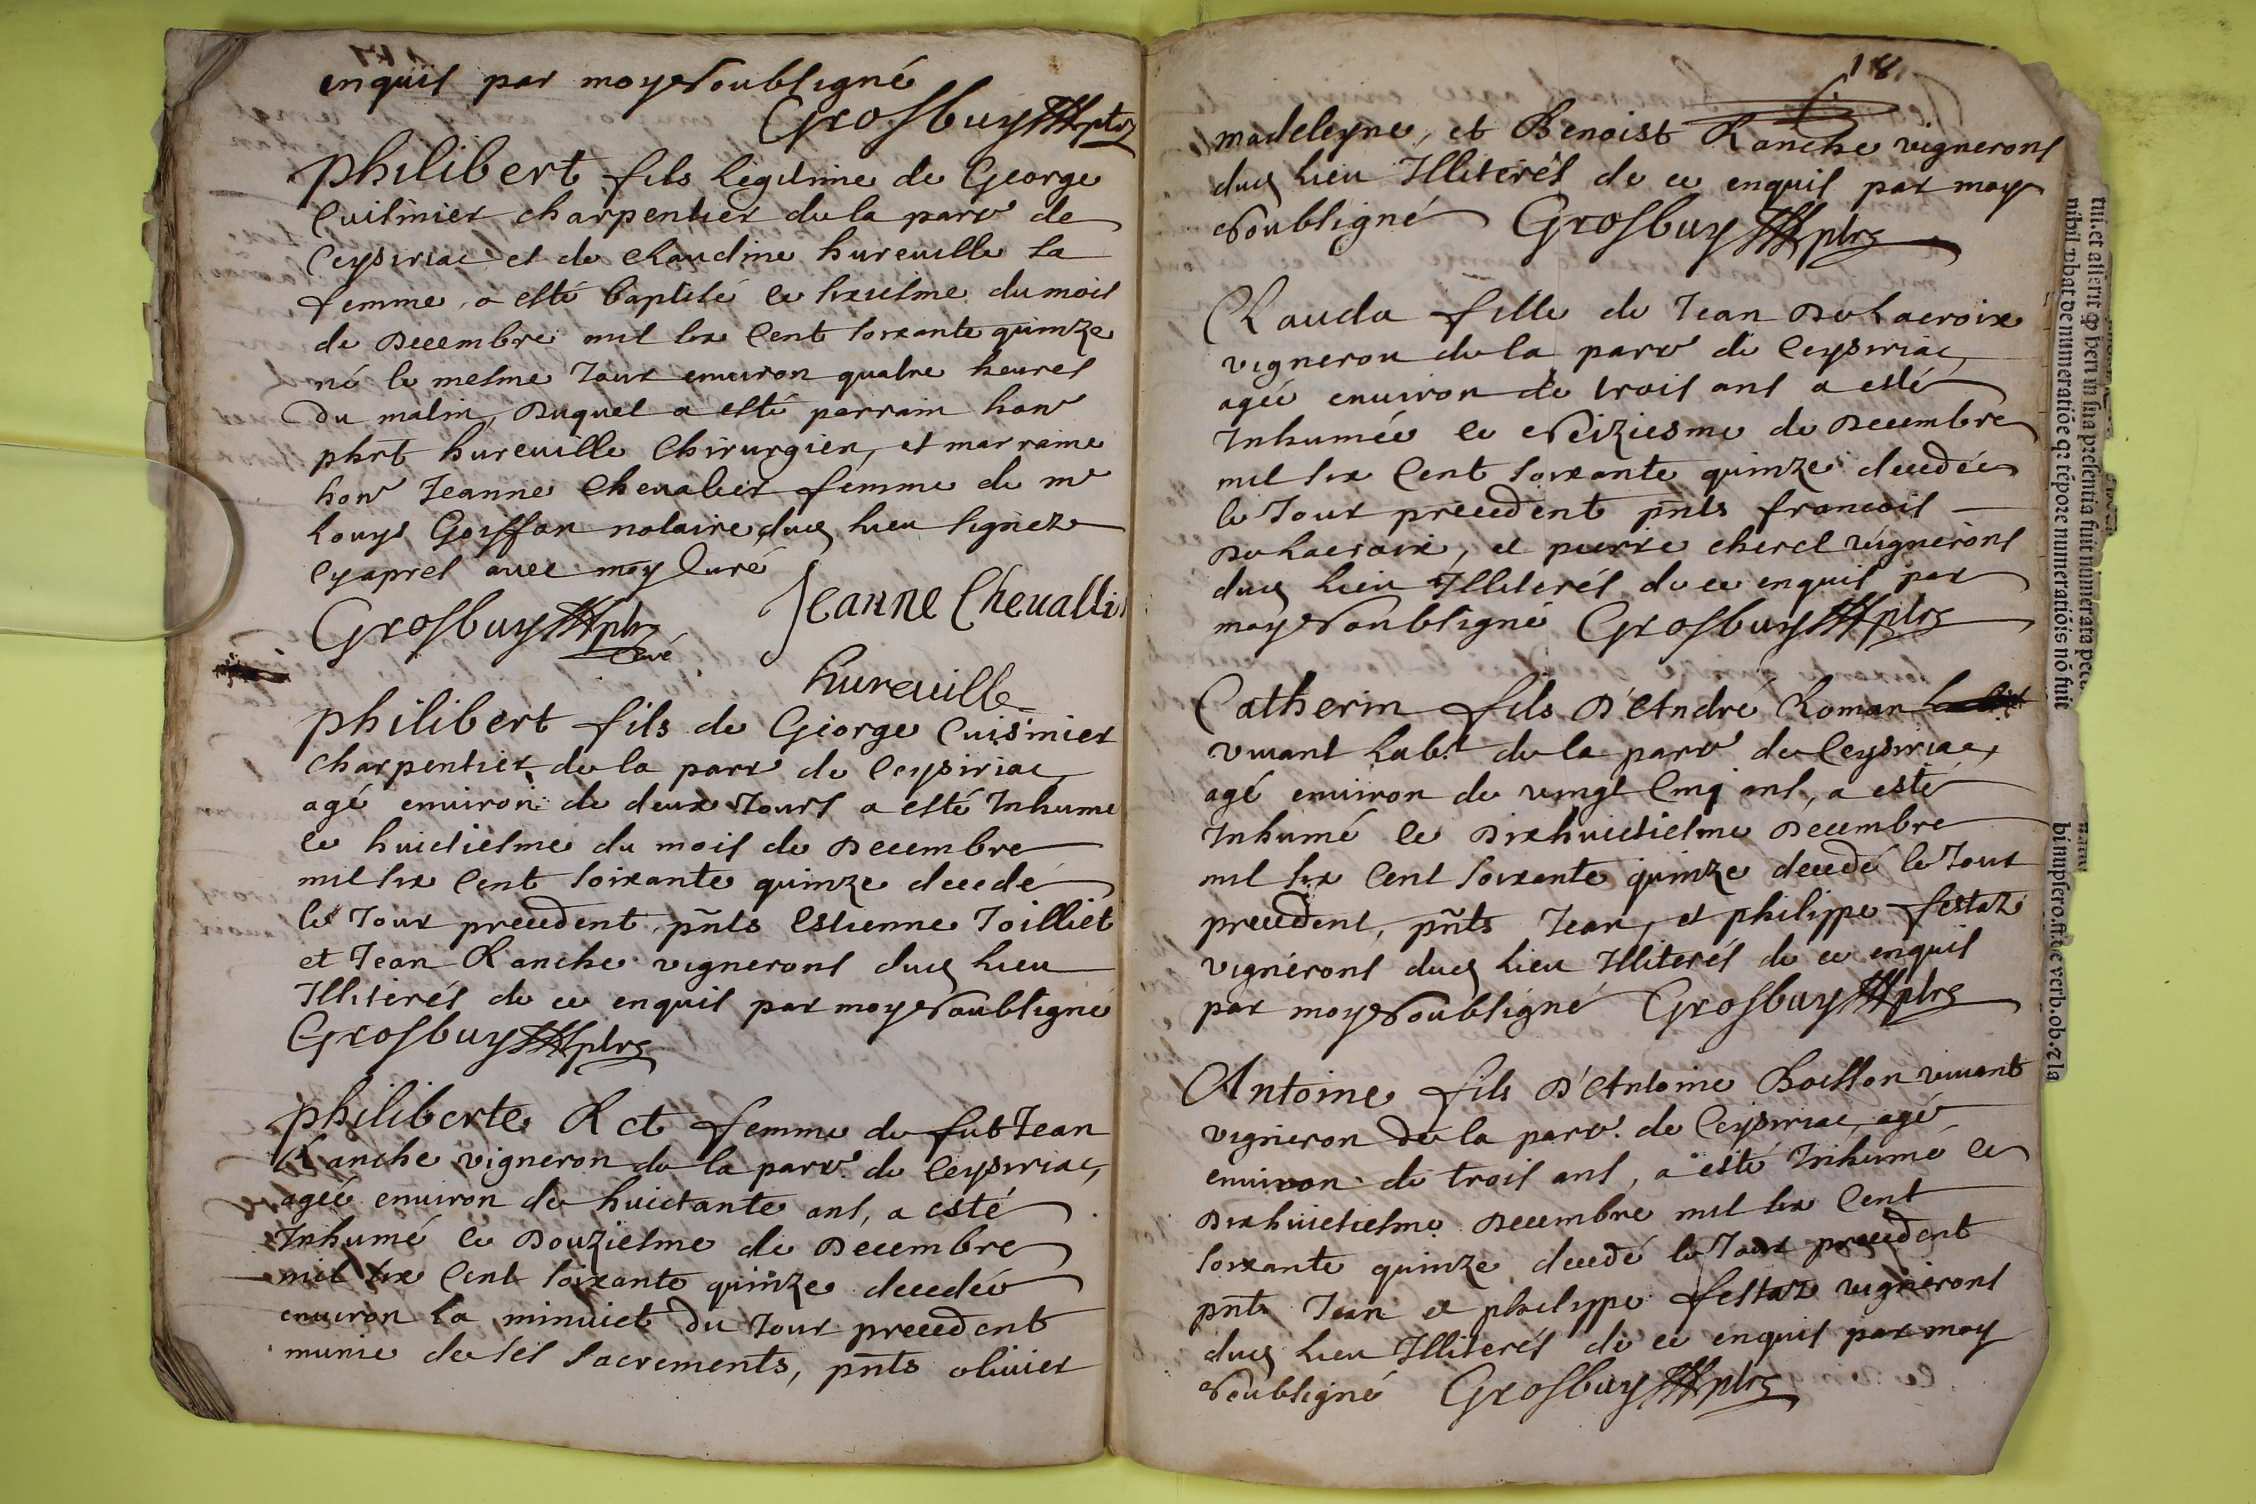 enquis par moy soubsigné
Grosbuy ptre
philibert fils legitime de George
Cuisinier charpentier de la parr de
Ceysiriac et de Claudine hureuille sa
femme, a esté baptisé ce sixiesme du mois
de Decembre mil six Cent soixante quinze
né le mesme Jour enuiron quatre heures
du matin, Duquel a esté parrain honr
phrt hureuille Chirurgien, et marraine
honr Jeanne Cheualier femme de mr
Louys Goiffon notaire dud lieu signez
Cyapres auec moy Curé
Grosbuy ptre
Curé
Jeanne Cheuallier
hureuille
philibert fils de George Cuisinier
Charpentier de la parr de Ceysiriac
agé enuiron de deux Jours a esté Inhumé
ce huictiesme du mois de Decembre
mil six Cent soixante quinze decedé
le Jour precedent pñts Estienne Joilliet
et Jean Ranche vignerons dud lieu
Illiterés de ce enquis par moy soubsigné
Grosbuy ptre
philiberte Ret femme de fut Jean
Ranche vigneron de la parr. de Ceysiriac,
ageé enuiron de huictante ans, a esté
Inhumé ce Douziesme de Decembre
mil six Cent soixante quinze decedée
enuiron la minuict du Jour precedent
munie de ses sacrements, pñts oliuier
18
madeleyne, et Benoist Ranche vignerons
dud lieu Illiterés de ce enquis par moy
soubsigné Grosbuy ptre
Clauda fille de Jean De Lacroix
vigneron de la parr de Ceysiriac,
ageé enuiron de trois ans a esté
Inhumée ce seiziesme de Decembre
mil six Cent soixante quinze decedée
le Jour precedent pñts francois
De Lacroix, et pierre cherel vignerons
dud lieu Illiterés de ce enquis par
moy soubsigné Grosbuy ptre
Catherin fils D'André Roman
viuant Labr. de la parr de Ceysiriac,
agé enuiron de vingt Cinq ans, a esté
Inhumé ce Dixhuictiesme Decembre
mil six Cent soixante quinze decedé le Jour
precedent, pñts Jean, et philippe festaz
vignerons dud lieu Illiterés de ce enquis
par moy soubsigné Grosbuy ptre
Antoine fils D'Antoine Boisson viuant
vigneron de la parr. de Ceysiriac, agé
enuiron de trois ans, a esté Inhumé ce
Dixhuictiesme Decembre mil six Cent
soixante quinze decedé le Jour precedent
pñts Jean et philippe festaz vignerons
dud lieu Illiterés de ce enquis par moy
soubsigné Grosbuy ptre